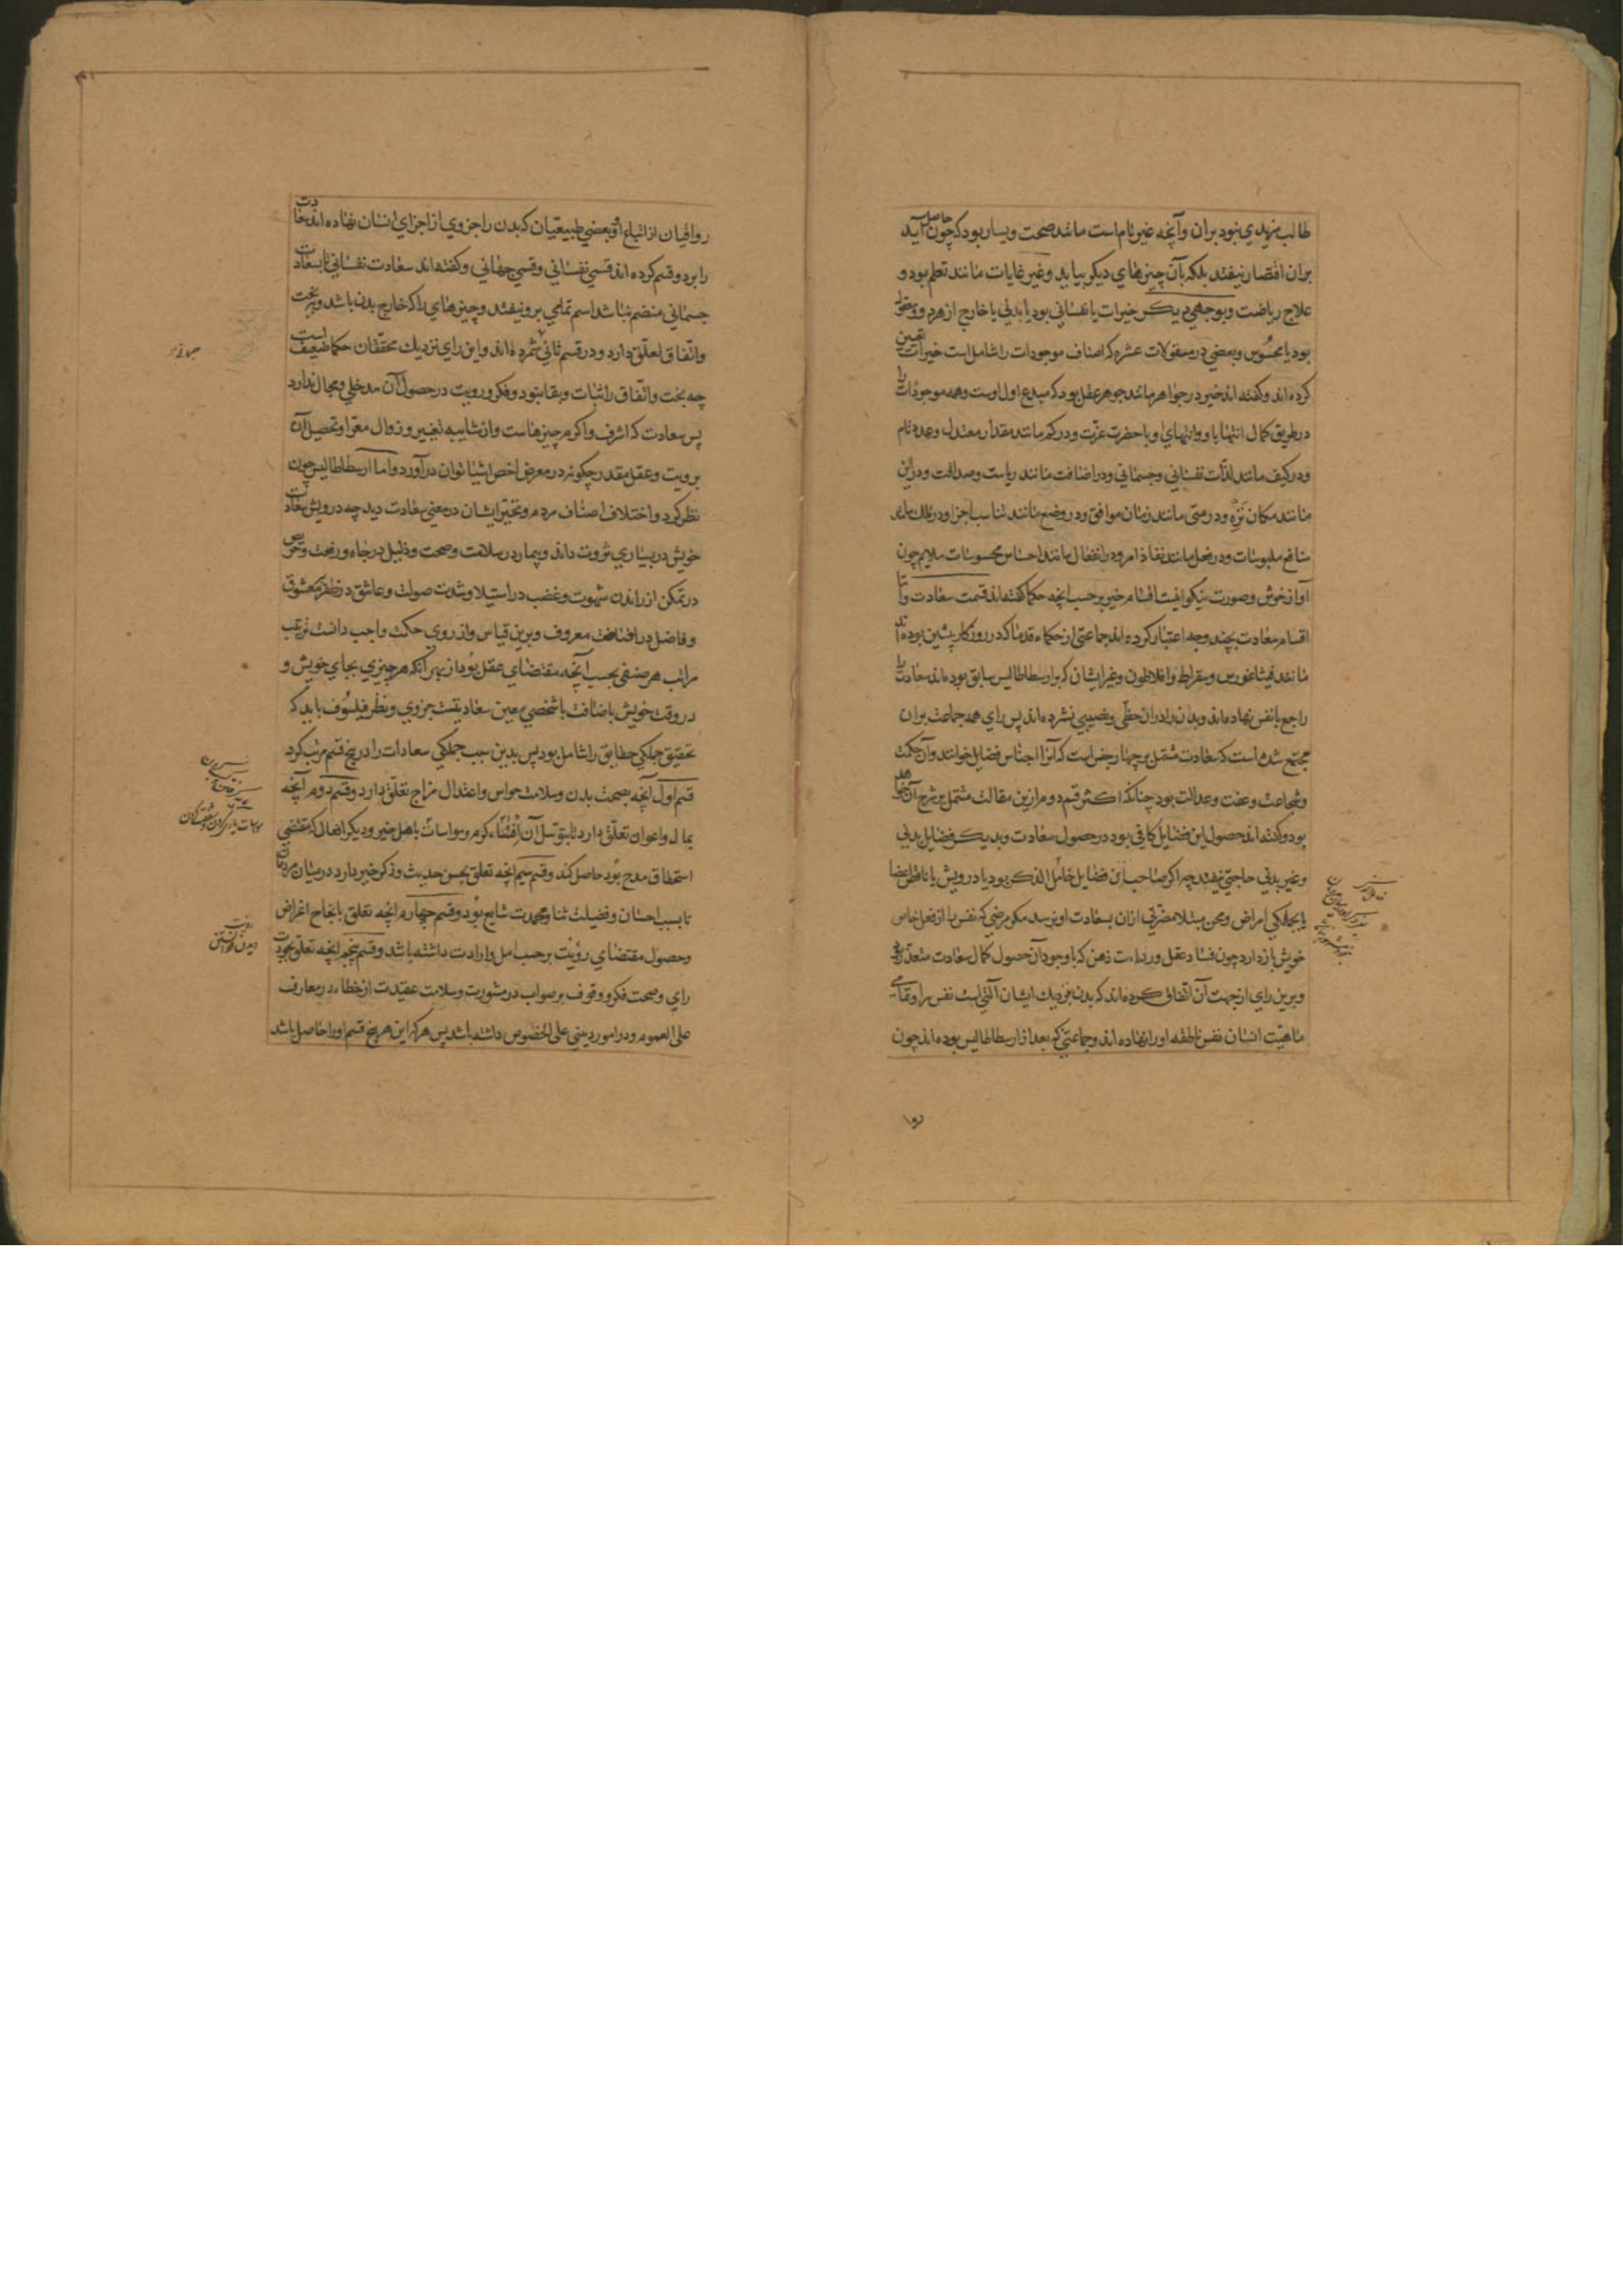 طالب مزیدی نبود بران وآنچه غیر تام است مانند صحت ویسار بود که چون حاصل آید
بران اقتصار نیفتد بلکه بآن چیزهای دیکر بباید وغیر غایات مانند تعلم بود و
علاج ریاضت وبوجهی دیکر خیرات یا نفسانی بود یا بدنی یا خارج از هردو ومعقول
بود یا محسوس وبعضی در مقولات عشره که اصناف موجودات را شامل است خیرات تعیین
کرده اند وکفته اند خیر در جواهر مانند جوهر عقل بود که مبدع اول اوست وهمه موجودات را
در طریق کمال انتها باو وانتهای او با حضرت عزت ودر کم مانند مقدار معتدل وعدد تام
ودر کیف مانند لذات نفسانی وجسمانی ودر اضافت مانند ریاست وصداقت ودر این
مانند مکان نزه ودر متی مانند زمان موافق ودر وضع مانند تناسب اجزا ودر ملک مانند
منافع ملبوسات ودر فعل مانند نفاذ امر ودر انفعال مانند احساس محسوسات ملایم چون
آواز خوش وصورت نیکو اینست اقسام خیر بر حسب آنچه حکما کفته اند قسمت سعادت واما
اقسام سعادت بچند وجه اعتبار کرده اند جماعتی از حکماء قدما که در روزکار پیشین بوده اند
مانند فیثاغورس وسقراط وافلاطون وغیر ایشان که بر ارسطاطالیس سابق بوده اند سعادت را
راجع با نفس نهاده اند وبدن را دران حظی ونصیبی نشمرده اند پس رای همه جماعت بران
مجتمع شده است که سعادت مشتمل بر چهار جنس است که آنرا اجناس فضایل خوانند وآن حکمت
وشجاعت وعفت وعدالت بود چنانکه اکثر قسم دوم ازین مقالت مشتمل بر شرح آن خواهد
بود وکفته اند حصول این فضایل کافی بود در حصول سعادت وبدیکر فضایل بدنی
وغیر بدنی حاجتی نیفتد چه اکر صاحب این فضایل خامل الذکر بود یا درویش یا ناقص اعضا
یا بجملکی امراض ومحن مبتلا مضرتی ازان بسعادت او نرسد مکر مرضی که نفس را از فعل خاص
خویش باز دارد چون فساد عقل ورداءت ذهن که با وجود آن حصول کمال سعادت متعذر بود
وبرین رای ازجهت آن اتفاق کرده اند که بدن بنزدیک ایشان آلتی است نفس را وتمامی
ماهیت انسان نفس ناطقه او را نهاده اند وجماعتی که بعد از ارسطاطالیس بوده اند چون
روا
رواقیان از اتباع او وبعضی طبیعیان که بدن را جزوی از اجزای انسان نهاده اند سعادت
را بر دو قسم کرده اند قسمی نفسانی وقسمی جسمانی وکفته اند سعادت نفسانی تا بسعادت
جسمانی منضم نباشد اسم تمامی برو نیفتد وچیزهای را که خارج بدن باشد وببخت
واتفاق تعلق دارد ودر قسم ثانی شمرده اند واین رای نزدیک محققان حکما ضعیف است
چه بخت واتفاق را ثبات وبقا نبود وفکر ورویت در حصول آن مدخلی ومجال ندارد
پس سعادت که اشرف واکرم چیزهاست واز شایبه تغییر وزوال معرا وتحصیل آن
برویت وعقل مقدر چکونه در معرض اخص اشیا توان در آورد واما ارسطاطالیس چون
نظر کرد واختلاف اصناف مردم وتحیر ایشان در معنی سعادت دید چه درویش سعادت
خویش در یساری ثروت داند وبیمار در سلامت وصحت وذلیل در جاه ورفعت وحریص
در تمکن از راندن شهوت وغضب در استیلا وشدت صولت وعاشق در ظفر بمعشوق
وفاضل در افاضت معروف وبرین قیاس واز روی حکمت واجب دانست ترتیب
مراتب هر صنفی بحسب آنچه مقتضای عقل بود از بهر آنکه هر چیزی بجای خویش و
در وقت خویش باضافت با شخصی معین سعادتیست جزوی ونظر فیلسوف باید که
تحقیق جملکی حقایق را شامل بود پس بدین سبب جملکی سعادات را در پنج قسم مرتب کرد
قسم اول آنچه بصحت بدن وسلامت حواس واعتدال مزاج تعلق دارد وقسم دوم آنچه
بمال واعوان تعلق دارد تا بتوسل آن افشاء کرم ومواسات با اهل خیر ودیکر افعال که مقتضی
استحقاق مدح بود حاصل کند وقسم سیم آنچه تعلق بحسن حدیث وذکر خیر دارد در میان مردمان
تا بسبب احسان وفضیلت ثنا ومحمدت شایع بود وقسم چهارم آنچه تعلق بانجاح اغراض
وحصول مقتضای رؤیت بر حسب امل وارادت داشته باشد وقسم پنجم آنچه تعلق بجودت
رای وصحت فکر ووقوف بر صواب در مشورت وسلامت عقیدت از خطاء در معارف
علی العموم ودر امور دینی علی الخصوص داشته باشد پس هرکه این هر پنج قسم او را حاصل باشد